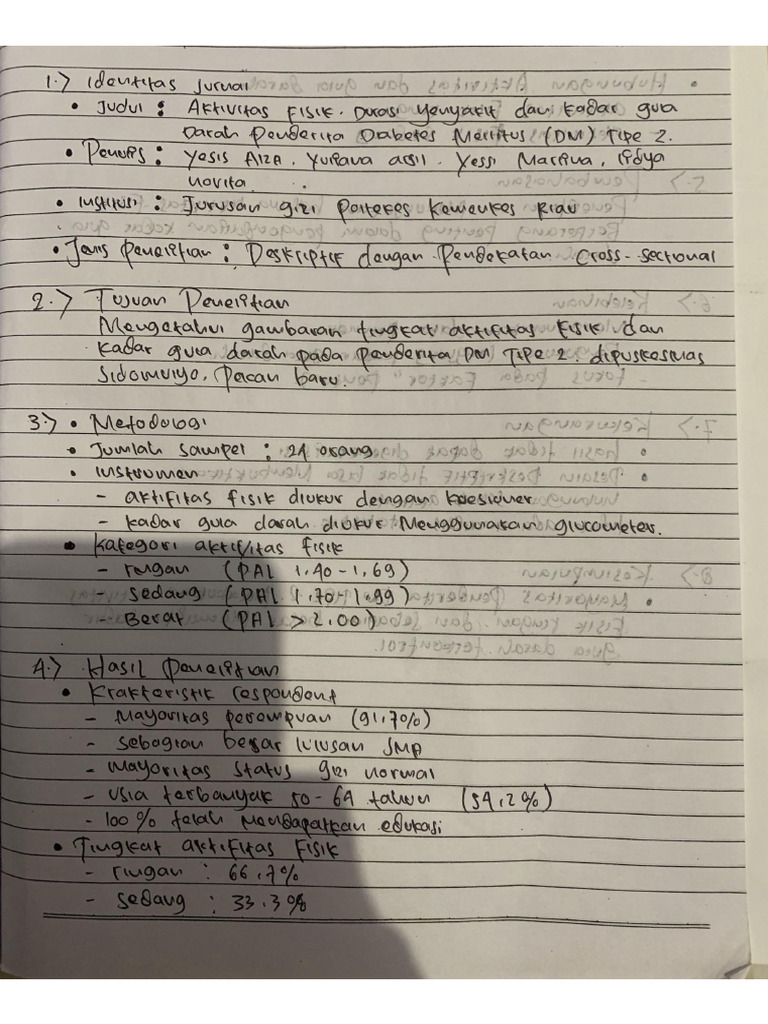 1.> Identitas Jurnal
• Judul : Aktivitas Fisik. Durasi Penyakit dan Kadar gula
Darah Penderita Diabetes Mellitus (DM) Tipe 2.
• Penulis : Yesis Aiza. Yuliana arsil. Yessi Marlina, Lidya
novita.
• Institusi : Jurusan gizi Poltekes Kemenkes Riau
• Jenis penelitian : Deskriptif dengan pendekatan cross-sectional
2.> Tujuan Penelitian
Mengetahui gambaran tingkat aktifitas Fisik dan
Kadar gula darah pada penderita DM Tipe 2. dipuskesmas
Sidomulyo, Pekan baru.
3.> • Metodologi
• Jumlah sampel : 24 orang
• Instrumen
- aktifitas fisik diukur dengan koesioner
- kadar gula darah diukur Menggunakan glucometer.
• Kategori aktifitas fisik
- ringan (PAL 1.40-1,69)
- sedang (PAL 1.70-1.99)
- Berat (PAL > 2.00)
4.> Hasil penelitian
• Krakteristik respondent
- Mayoritas perempuan (91.7%)
- sebagian besar lulusan SMA
- Mayoritas status gizi normal
- Usia terbanyak 50-64 tahun (54,2%)
- 100% telah Mendapatkan edukasi
• Tingkat aktifitas Fisik
- ringan : 66.7%
- sedang : 33.3%